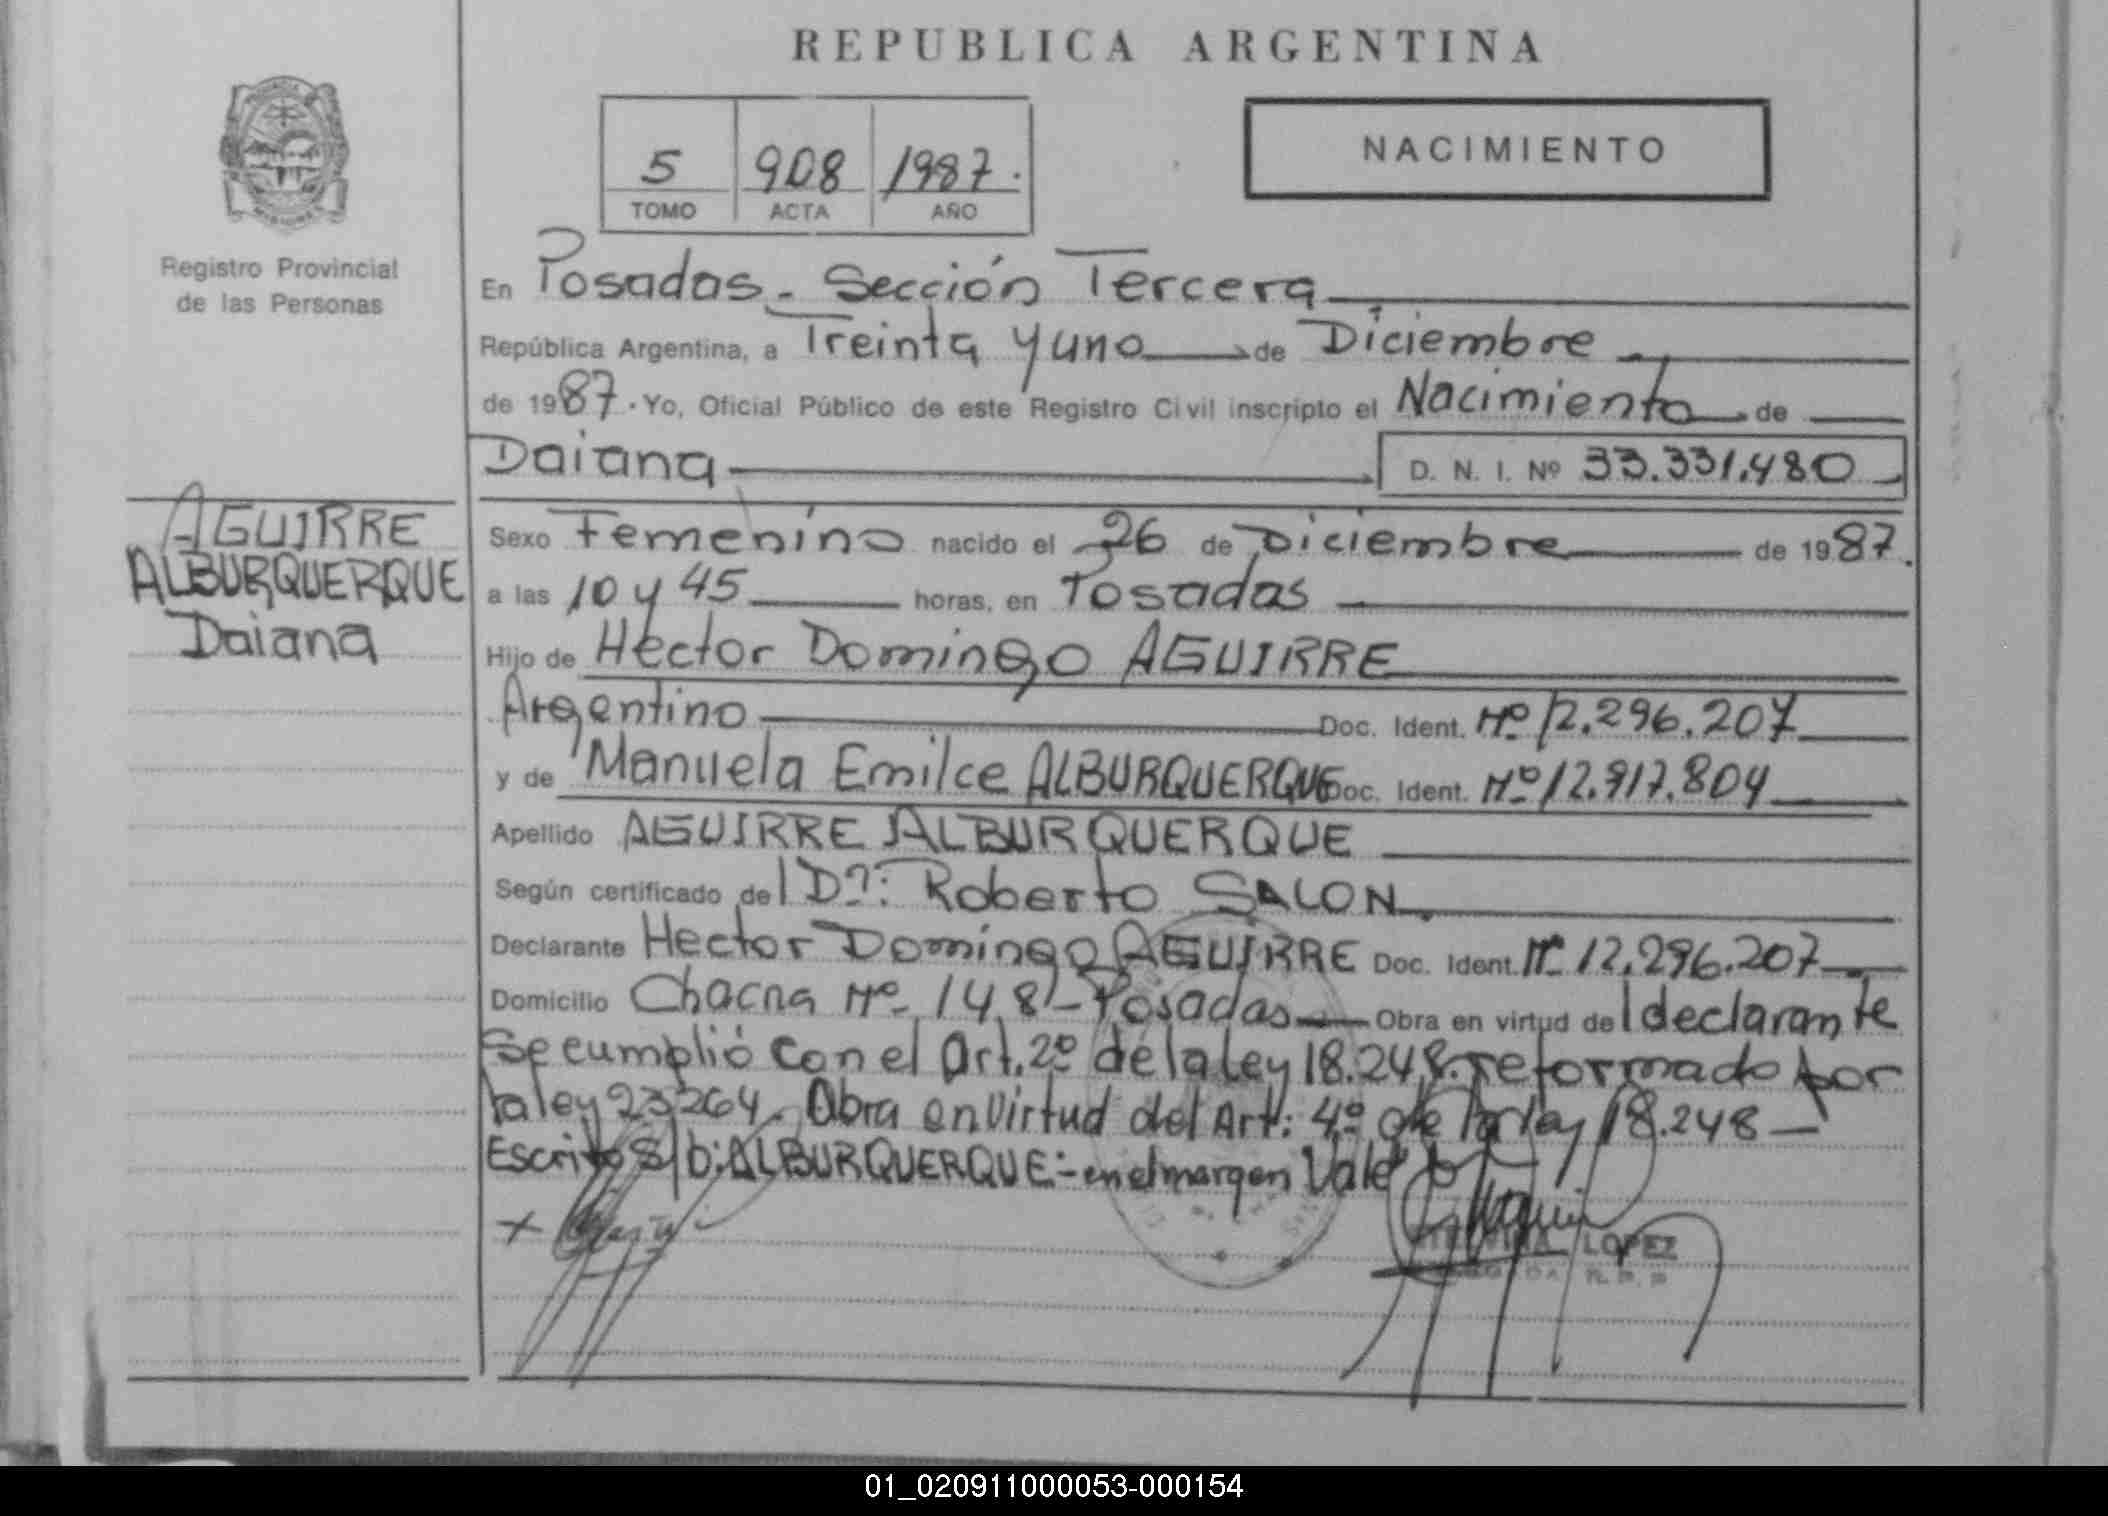 REPUBLICA ARGENTINA
5 908 1987.
TOMO ACTA AÑO
NACIMIENTO
Registro Provincial
de las Personas
En Posadas. Sección Tercera
República Argentina, a Treinta y uno de Diciembre
de 1987. Yo, Oficial Público de este Registro Civil inscripto el Nacimiento de
Daiana D. N. I. Nº 33.331.480
AGUIRRE
ALBURQUERQUE
Daiana
Sexo Femenino nacido el 26 de Diciembre de 1987.
a las 10 y 45 horas, en Posadas
Hijo de Hector Domingo AGUIRRE
Argentino Doc. Ident. Nº 12.296.207
y de Manuela Emilce ALBURQUERQUE Doc. Ident. Nº 12.917.804
Apellido AGUIRRE ALBURQUERQUE
Según certificado del Dr: Roberto SALON.
Declarante Hector Domingo AGUIRRE Doc. Ident. Nº 12.296.207
Domicilio Chacra Nº 148 - Posadas Obra en virtud del declarante
Se cumplió con el Art. 2º de la ley 18.248. reformado por
la ley 23264. Obra en virtud del Art: 4º de la ley 18.248 —
Escrito s/b: ALBURQUERQUE:- en el margen Vale
+
LOPEZ
01_020911000053-000154